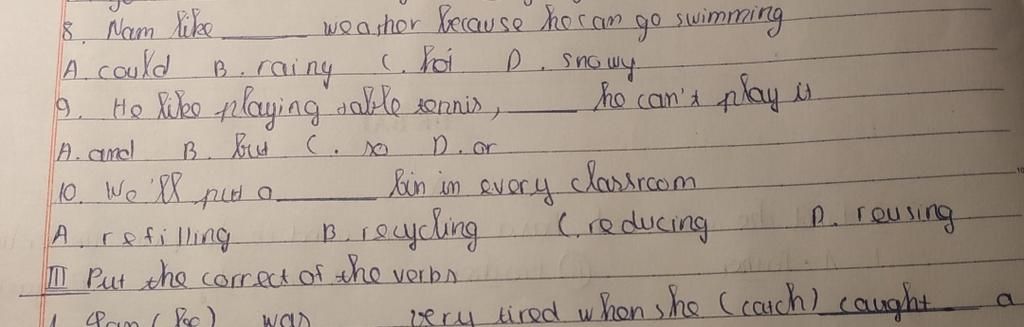 8. Nam like ______ weather because he can go swimming
A. could B. rainy C. hot D. snowy
9. He like playing table tennis, ______ he can't play it
A. and B. but C. so D. or
10. We'll put a ______ bin in every classroom
A. refilling B. recycling C. reducing D. reusing
III Put the correct of the verbs
1. (be) was very tired when she (catch) caught a